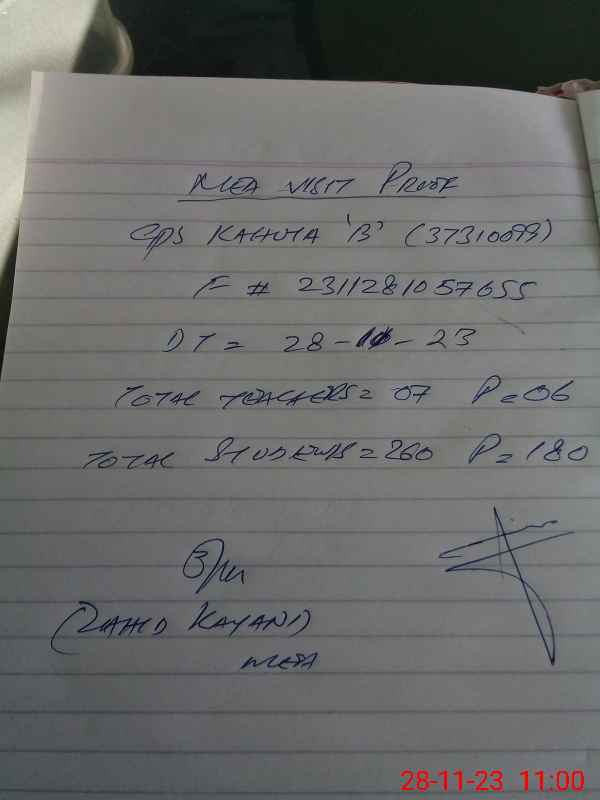 MEA VISIT PROOF
GPS KAHUTA 'B' (37310099)
F # 2311281057655
DT = 28-11-23
TOTAL TEACHERS = 07 P = 06
TOTAL STUDENTS = 260 P = 180
(ZAHID KAYANI)
MEA
28-11-23 11:00